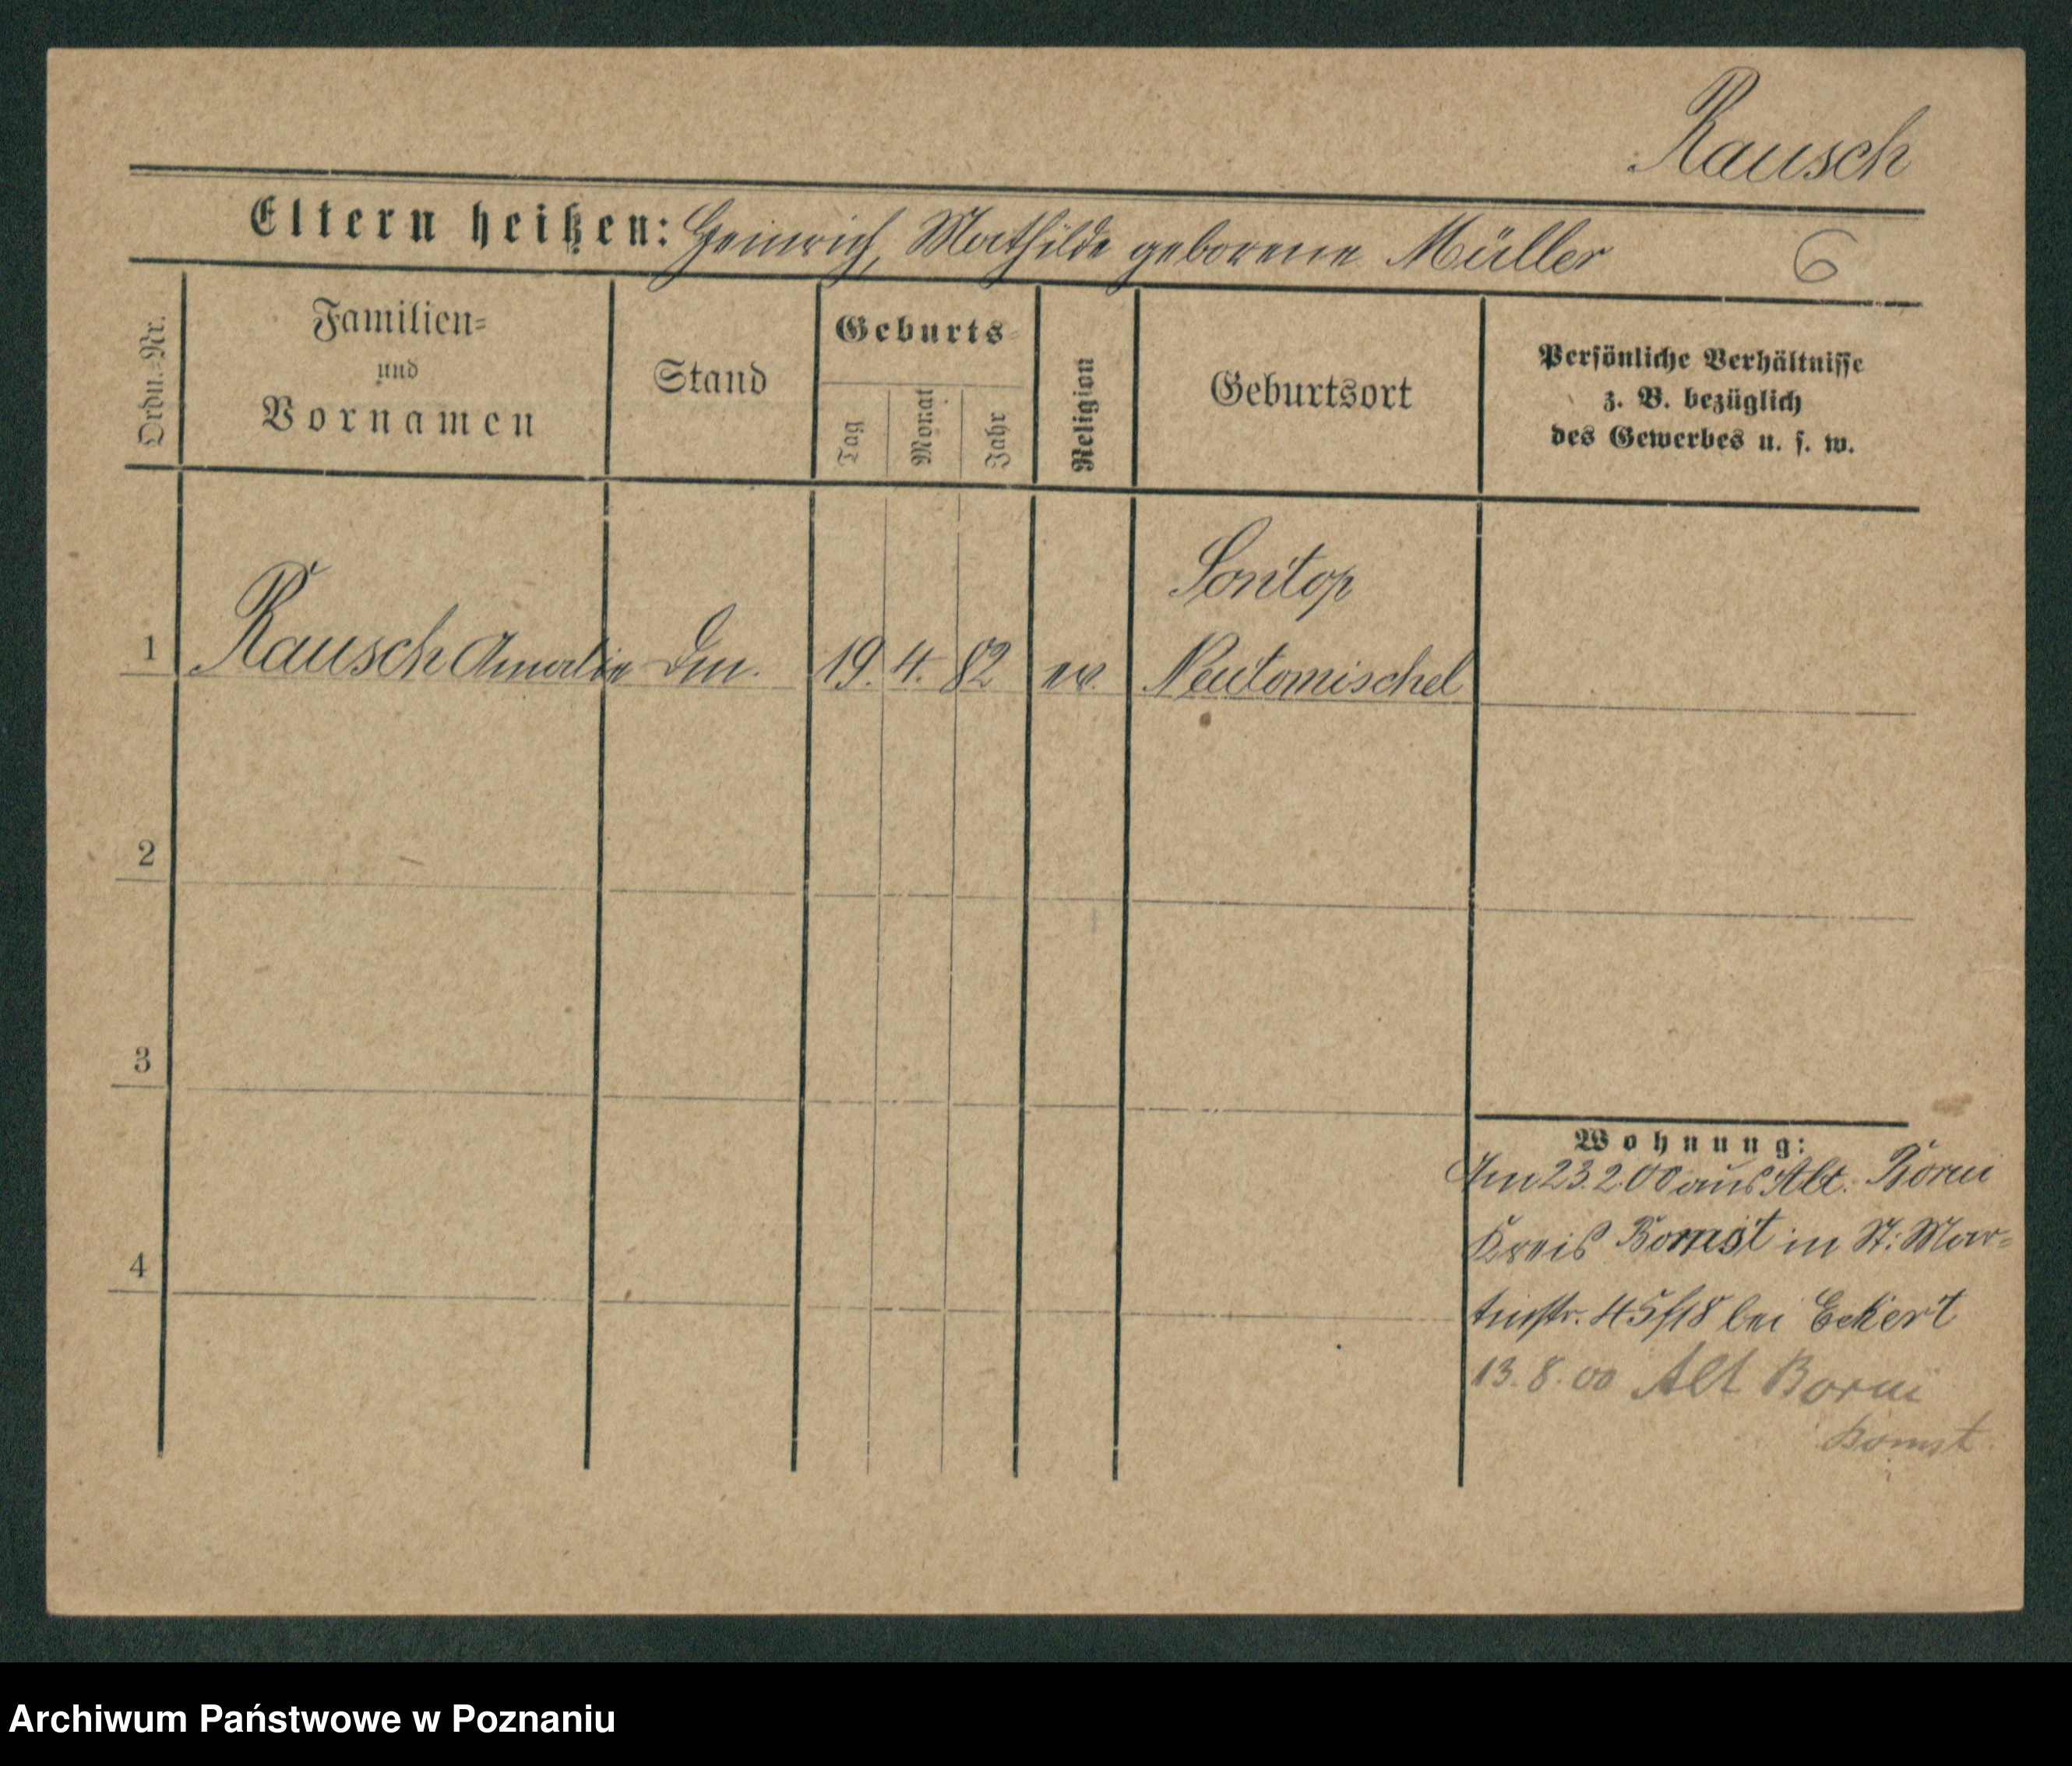 Rausch
Eltern heißen: Heinrich, Mathilde geborene Müller
6
Ordn.-Nr.
Familien-
und
Vornamen
Stand
Geburts-
Tag
Monat
Jahr
Religion
Geburtsort
Persönliche Verhältnisse
z. B. bezüglich
des Gewerbes u. s. w.
Sontop
1 Rausch Amalie Dm. 19. 4. 82 ev. Neutomischel
2
3
4
Wohnung:
Am 23.2.00 aus Alt. Borui
Kreis Bomst in St: Mar-
tinstr. 45/18 bei Eckert
13. 8. 00 Alt Borui
Bomst
Archiwum Państwowe w Poznaniu